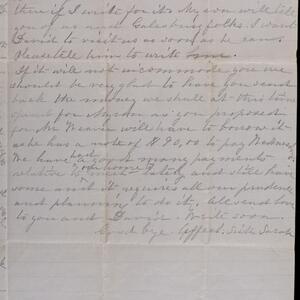 then if I write for it. My son will take
you or as near Galesburg folks. I want
David to visit us as soon as he can.
Please tell him to write soon.
If it will not uncommode you we
should be very glad to have you send
back the money we shall at this time
spent for as you proposed
for Mr Weaver will have to borrow it
as he has a note of $90.00 to pay
We have had a good many payments
relative to lately and still have
some and it requires all our prudence
and planning to do it. All send love
to you and David. Write soon.
Good bye. Affect. Sister Sarah